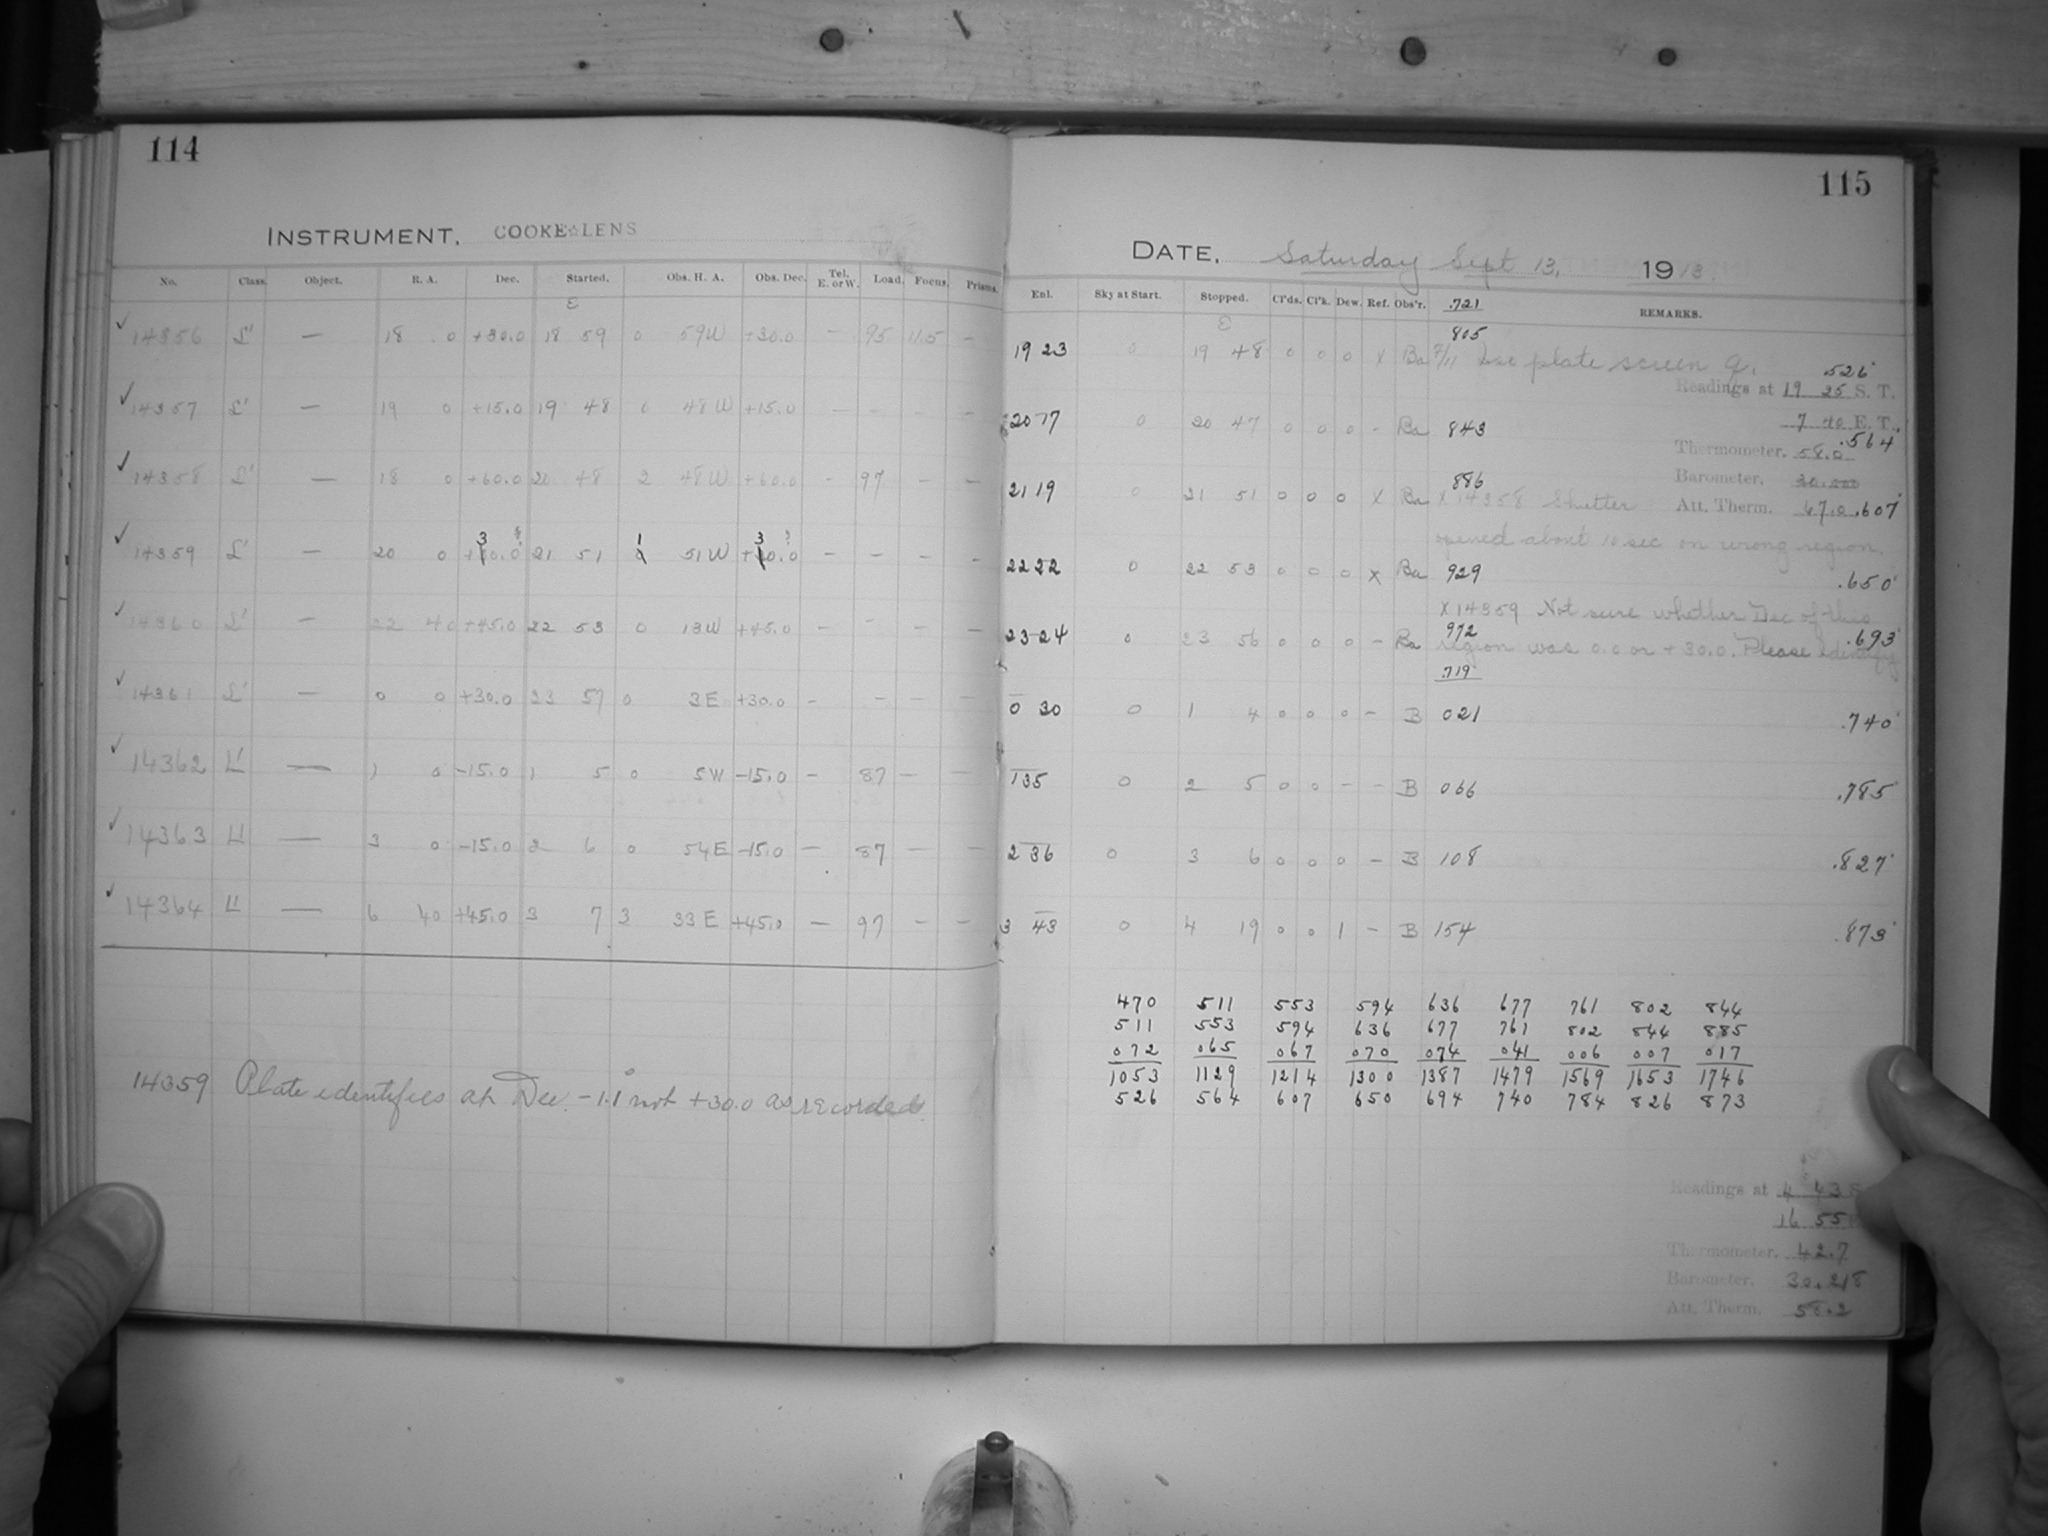 114
INSTRUMENT. COOKE LENS
No. Class. Object. R. A. Dec. Started. Obs. H. A. Obs. Dec. Tel. E. or W. Load. Focus. Prisms.
E
14356 L' — 18 0 +30.0 18 59 0 59W +30.0 — 95 11.5 —
14357 L' — 19 0 +15.0 19 48 0 48W +15.0 — — — —
14358 L' — 18 0 +60.0 20 48 2 48W +60.0 — 97 — —
14359 L' — 20 0 21 51 1 51W — — — —
14360 L' — 22 40 +45.0 22 53 0 13W +45.0 — — — —
14361 L' — 0 0 +30.0 23 57 0 3E +30.0 — — — —
14362 L' — 1 0 -15.0 1 5 0 5W -15.0 — 87 — —
14363 L' — 3 0 -15.0 2 6 0 54E -15.0 — 87 — —
14364 L' — 6 40 +45.0 3 7 3 33E +45.0 — 97 — —
14359 Plate identifies at Dec. -1.1° not +30.0 as recorded.
115
DATE, Saturday Sept 13, 1913
Enl. Sky at Start. Stopped. Cl'ds. Cl'k. Dew. Ref. Obs'r. .721 REMARKS.
E
805
19 23 0 19 48 0 0 0 x Ba 7/11 Use plate screen 9. .526
Readings at 19 25 S. T.
7 40 E. T.
20 17 0 20 47 0 0 0 - Ba 843 .564
Thermometer. 58.0
Barometer. 30.200
886
21 19 0 21 51 0 0 0 x Ba x 14358 Shutter Att. Therm. 67.0 .607
opened about 10 sec on wrong region.
22 22 0 22 53 0 0 0 x Ba 929 .650
x 14359 Not sure whether Dec of this
972 .693
23 24 0 23 56 0 0 0 - Ba region was 0.0 or +30.0. Please identify
.719
0 30 0 1 4 0 0 0 - B 021 .740
1 35 0 2 5 0 0 - - B 066 .785
2 36 0 3 6 0 0 0 - B 108 .827
3 43 0 4 19 0 0 1 - B 154 .873
470 511 553 594 636 677 761 802 844
511 553 594 636 677 761 802 844 885
072 065 067 070 074 041 006 007 017
1053 1129 1214 1300 1387 1479 1569 1653 1746
526 564 607 650 694 740 784 826 873
Readings at 4 43 S
16 55
Thermometer. 42.7
Barometer. 30.218
Att. Therm. 58.2